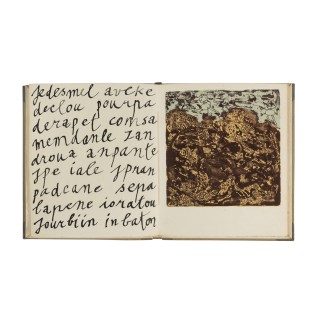 jedesmel avcke
declou pourpa
derapet comsa
memdanle zan
droua anpante
spe iale spran
padcane sepa
lapene ioratou
sourbiin in baton